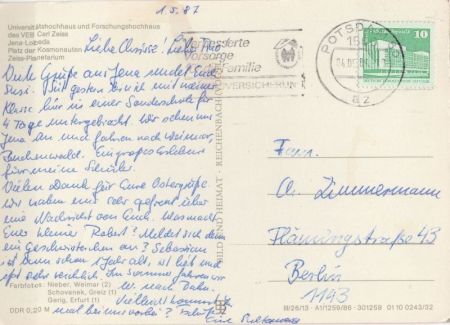 1.5.87
Universitätshochhaus und Forschungshochhaus
des VEB Carl Zeiss
Jena-Lobeda
Platz der Kosmonauten
Zeiss-Planetarium
Liebe Chrissi! Liebe
Viele Grüße aus Jena sendet Euch
Susi. Seit gestern bin ich mit meiner
Klasse hier in einer Sonderschule für
4 Tage untergebracht. Wir schauen uns
Jena an und fahren nach Weimar,
Buchenwald. Ein großes Erlebnis
für meine Schüler.
Vielen Dank für Eure Ostergrüße.
Wir haben uns sehr gefreut über
eine Nachricht von Euch. Was macht
Euer kleiner Robert? Meldet sich denn
ein Geschwisterchen an? Sebastian
ist dann schon 1 Jahr alt, ist lieb und
Im Sommer fahren wir
nach
Vielleicht kommt
mal bei uns vorbei?
Eure
Farbfotos: Nieber, Weimar (2)
Schovanek, Greiz (1)
Gerig, Erfurt (1)
DDR 0,20 M
BILD UND HEIMAT · REICHENBACH
verbesserte
Vorsorge
Familie
VERSICHERUNG
POTSDAM
az
10
Fam.
O. Zimmermann
Flämingstraße 43
Berlin
1143
III/26/13 · A1/1259/86 · 301259 01 10 0243/32